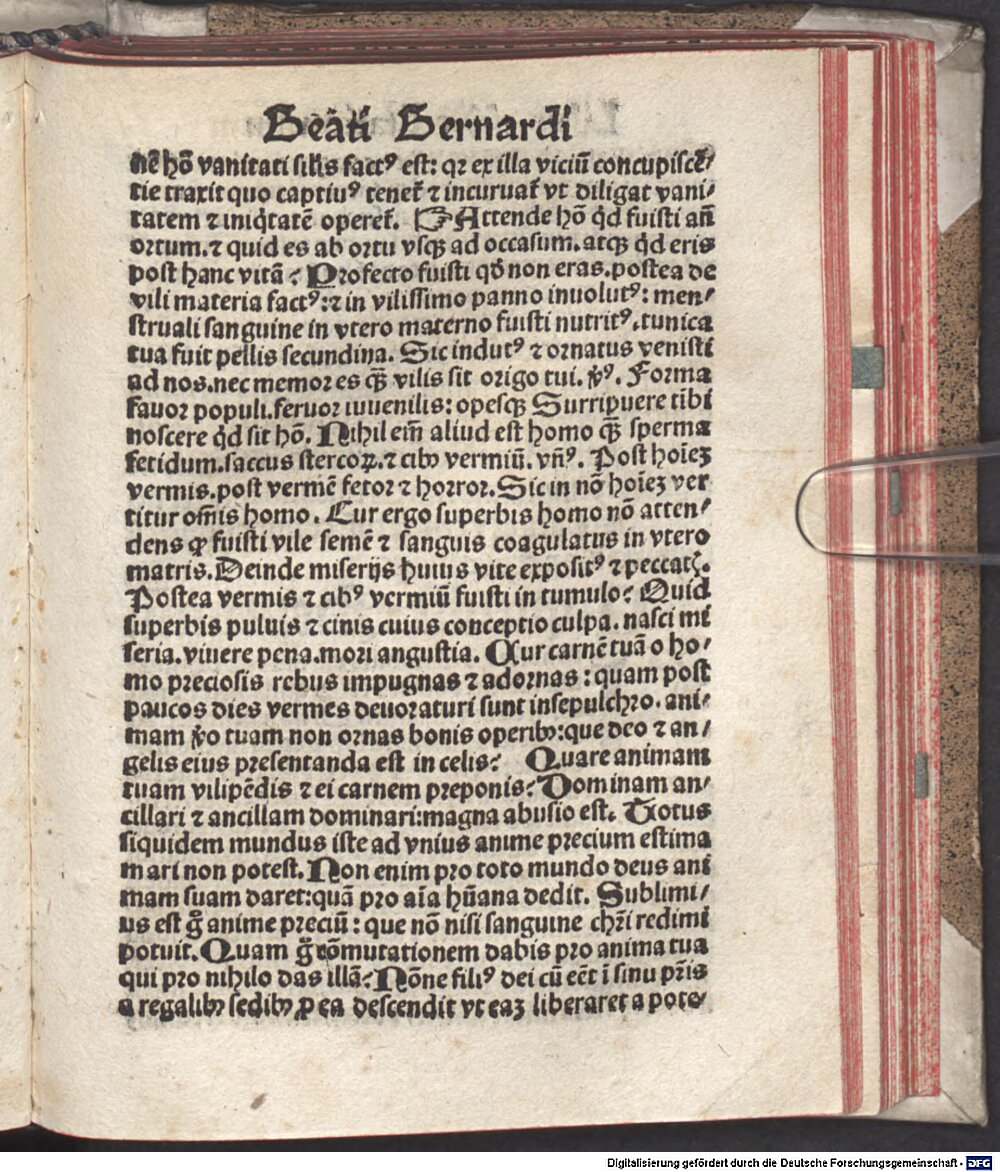 Beāti Bernardi
nē hō vanitati silis factꝰ est: qꝛ ex illa viciū concupiscē⸗
tie traxit quo captiuꝰ teneť ⁊ incuruať vt diligat vani⸗
tatem ⁊ iniq̇tatē opereť. ☞Attende hō q̇d fuisti añ
ortum.⁊ quid es ab ortu vsqꝫ ad occasum.atqꝫ q̇d eris
post hanc vitā? Profecto fuisti qđ non eras.postea de
vili materia factꝰ:⁊ in vilissimo panno inuolutꝰ: men⸗
struali sanguine in vtero materno fuisti nutritꝰ.tunica
tua fuit pellis secundina. Sic indutꝰ ⁊ ornatus venisti
ad nos.nec memor es qꝫ̄ vilis sit origo tui. v̊ꝰ. Forma
fauor populi.feruor iuuenilis: opesqꝫ Surripuere tibi
noscere q̇d sit hō. Nihil em̄ aliud est homo qꝫ̄ sperma
fetidum.saccus stercoꝝ.⁊ cibꝰ vermiū. vn̄ꝰ. Post hoīeꝫ
vermis.post vermē fetor ⁊ horror.Sic in nō hoīeꝫ ver
titur om̄is homo. Cur ergo superbis homo nō atten⸗
dens ꝙ fuisti vile semē ⁊ sanguis coagulatus in vtero
matris.Deinde miserijs huius vite expositꝰ ⁊ peccatꝭ.
Postea vermis ⁊ cibꝰ vermiū fuisti in tumulo? Quid
superbis puluis ⁊ cinis cuius conceptio culpa. nasci mi
seria.viuere pena.mori angustia. Cur carnē tuā o ho⸗
mo preciosis rebus impugnas ⁊ adornas: quam post
paucos dies vermes deuoraturi sunt insepulchro. ani⸗
mam v̊o tuam non ornas bonis operibꝰ:que deo ⁊ an⸗
gelis eius presentanda est in celis? Quare animam
tuam vilipēdis ⁊ ei carnem preponis? Dominam an⸗
cillari ⁊ ancillam dominari:magna abusio est. Totus
siquidem mundus iste ad vnius anime precium estima
mari non potest. Non enim pro toto mundo deus ani
mam suam daret:quā pro aīa hūana dedit. Sublimi⸗
us est g̊ anime preciū: que nō nisi sanguine chr̄i redimi
potuit. Quam g̊ cōmutationem dabis pro anima tua
qui pro nihilo das illā? Nōne filiꝰ dei cū eēt ī sinu pr̄is
a regalibꝰ sedibꝰ ꝓ ea descendit vt eaꝫ liberaret a pote⸗
Digitalisierung gefördert durch die Deutsche Forschungsgemeinschaft - DFG